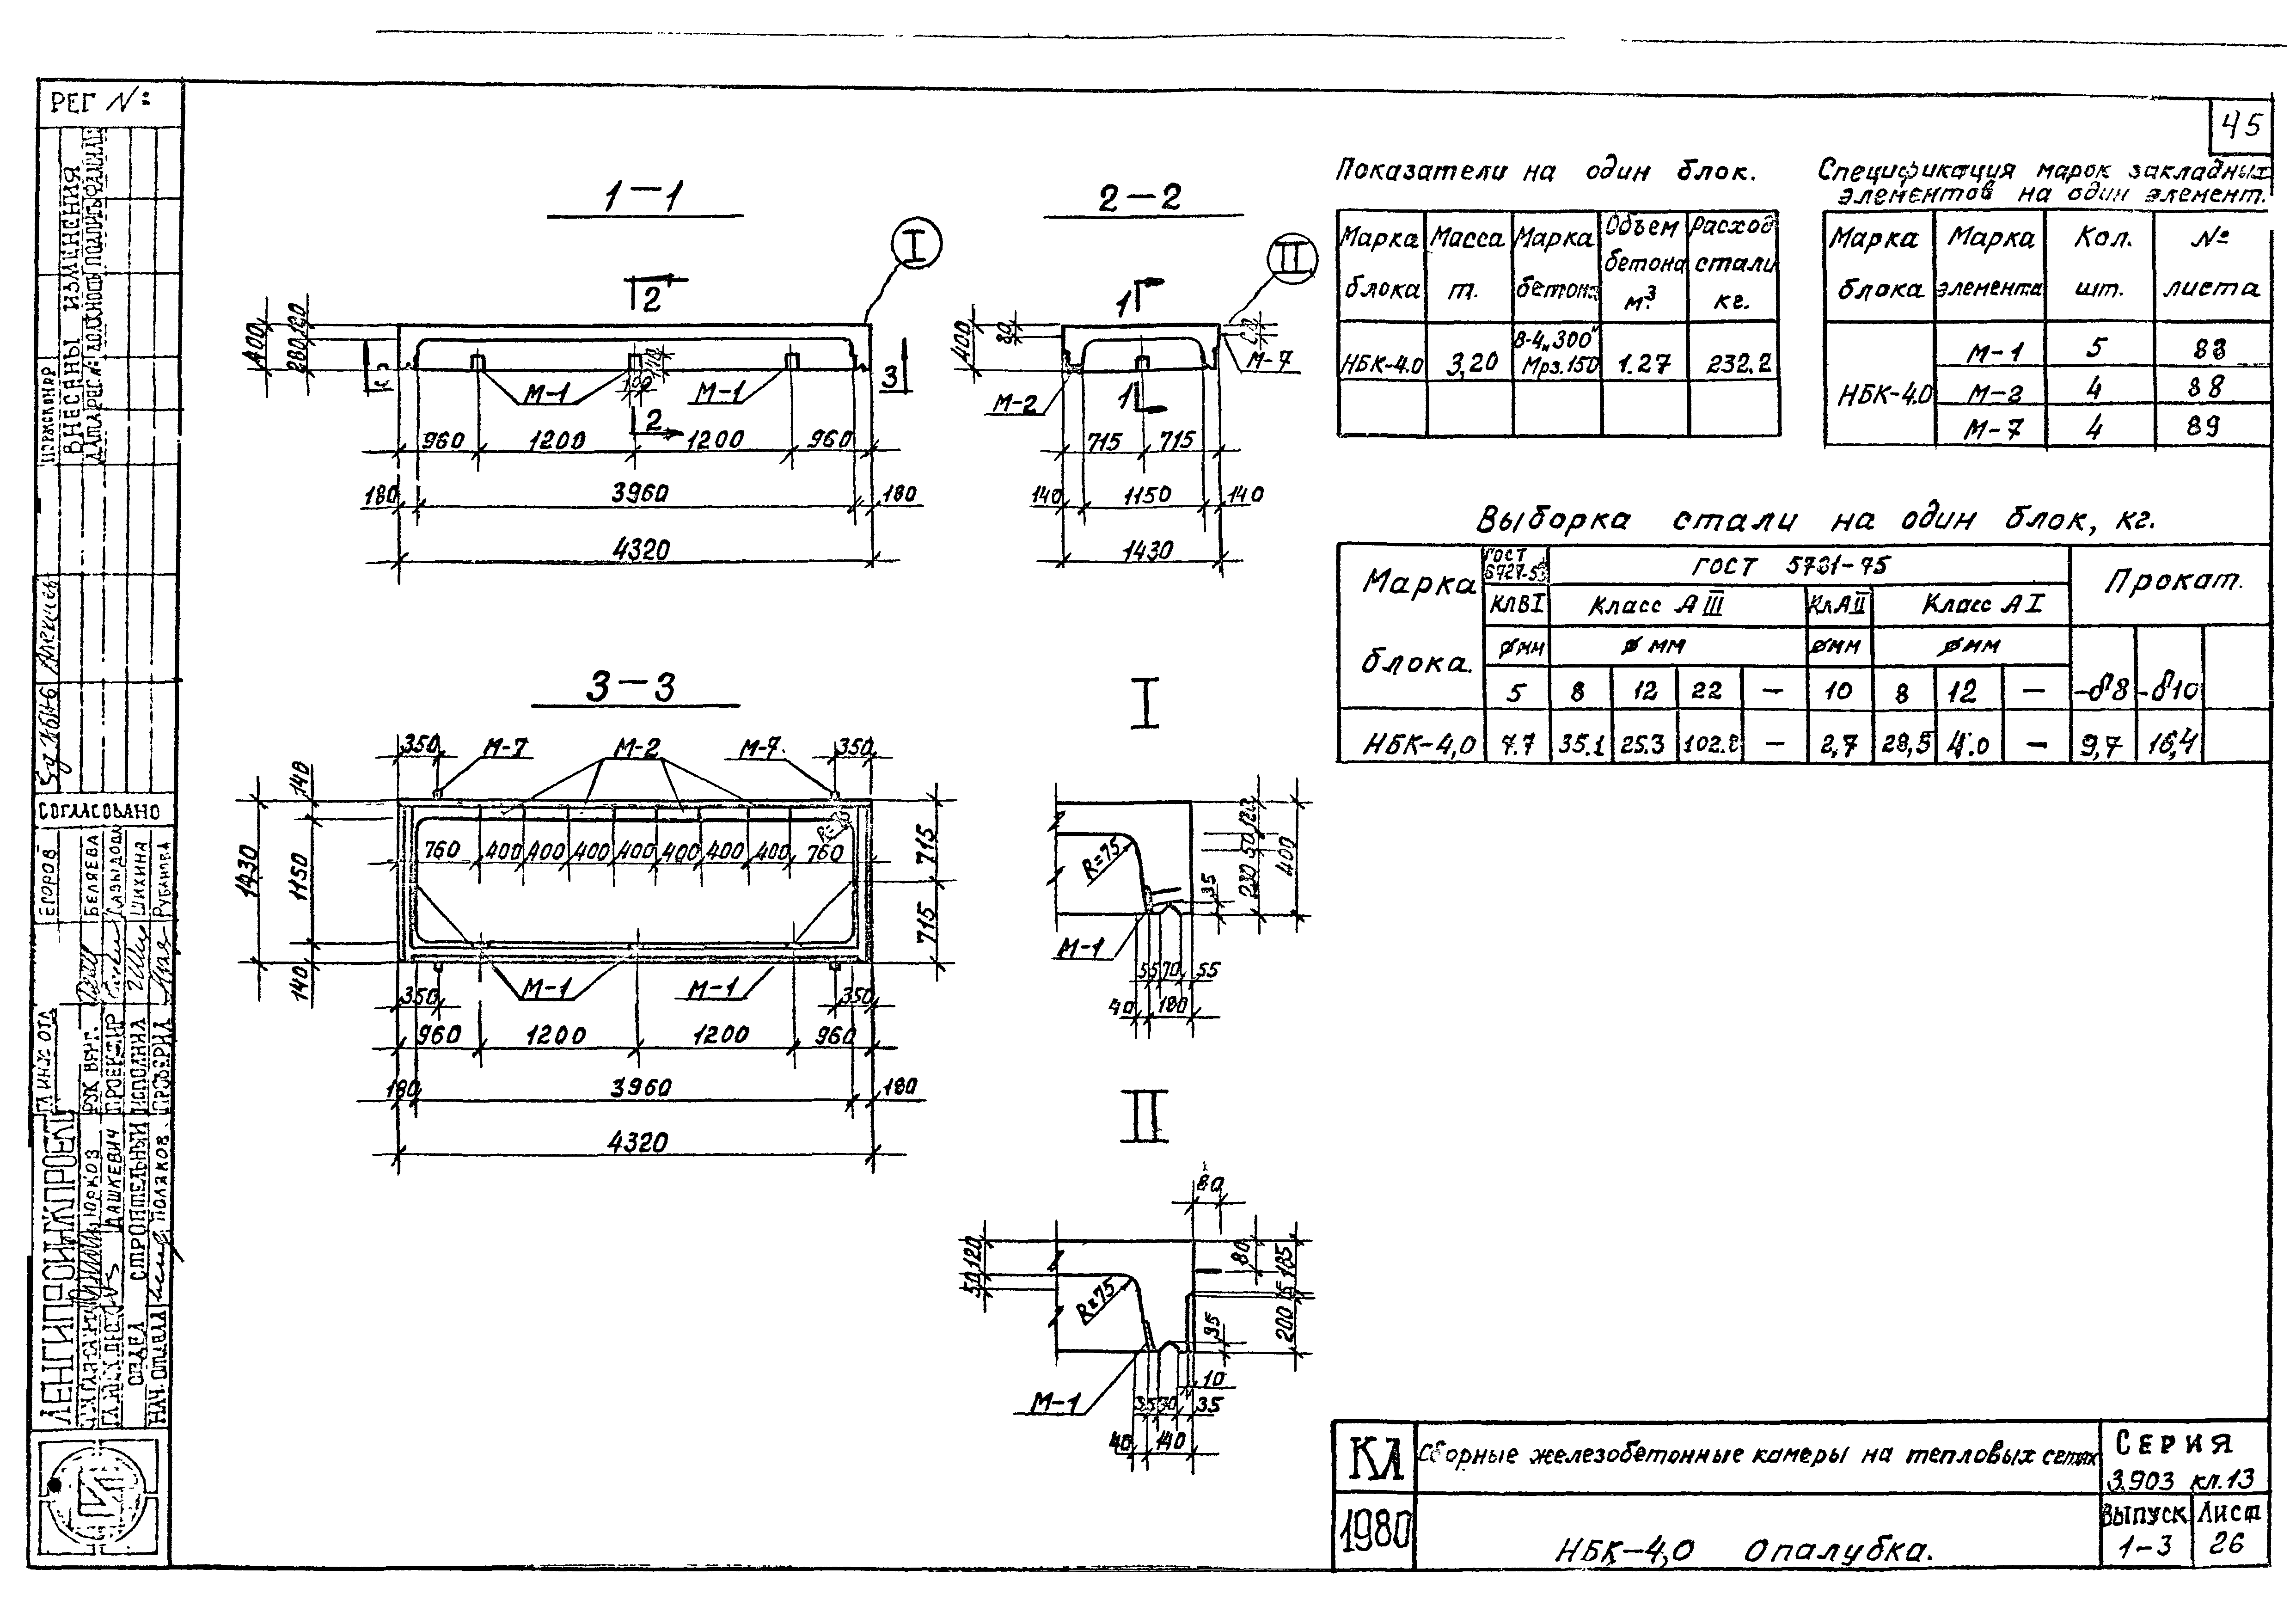 45
РЕГ №
ВНЕСЕНЫ ИЗМЕНЕНИЯ
СОГЛАСОВАНО
ЕГОРОВ
БЕЛЯЕВА
ДАВЫДОВА
ШИХИНА
РУБАНОВА
РУК ВЕНТ.
ПРОЕКТИР
ИСПОЛНИЛ
ПРОВЕРИЛ
ЮРКОВ
ДАШКЕВИЧ
ОТДЕЛ СТРОИТЕЛЬНЫЙ
НАЧ. ОТДЕЛА
ПОЛЯКОВ
ЛЕНГИПРОИНЖПРОЕКТ
1—1
I
2
400
280
120
3
М-1
М-1
100
2
960 1200 1200 960
180 3960 180
4320
2—2
II
1
400
80
М-7
М-2
1
715 715
140 1150 140
1430
3—3
350 М-7 М-2 М-7. 350
140
1430
1150
140
R=75
760 400 400 400 400 400 400 400 760
715
715
М-1 М-1
350 350
960 1200 1200 960
180 3960 180
4320
I
R=75
120
50
230
400
35
М-1
55 70 55
40 180
II
80
120
50
R=75
80
185
15
200
35
10
М-1
35 70 35
40 140
Показатели на один блок.
Марка блока Масса т. Марка бетона Объем бетона м³ Расход стали кг.
НБК-4.0 3,20 В-4„300" Мрз.150 1.27 232,2
Спецификация марок закладных
элементов на один элемент.
Марка блока Марка элемента Кол. шт. № листа
НБК-4.0 М-1 5 88
М-2 4 88
М-7 4 89
Выборка стали на один блок, кг.
Марка блока. ГОСТ 6727-53 ГОСТ 5781-75 Прокат.
КЛВI Класс АIII КлАII Класс АI
⌀мм ⌀ мм ⌀мм ⌀мм
5 8 12 22 — 10 8 12 — -δ8 -δ10
НБК-4,0 7.7 35.1 25.3 102.8 — 2,7 28,5 4.0 — 9,7 16,4
КЛ
Сборные железобетонные камеры на тепловых сетях
СЕРИЯ
3.903 кл.13
1980
НБК-4,0 Опалубка.
Выпуск Лист
1-3 26